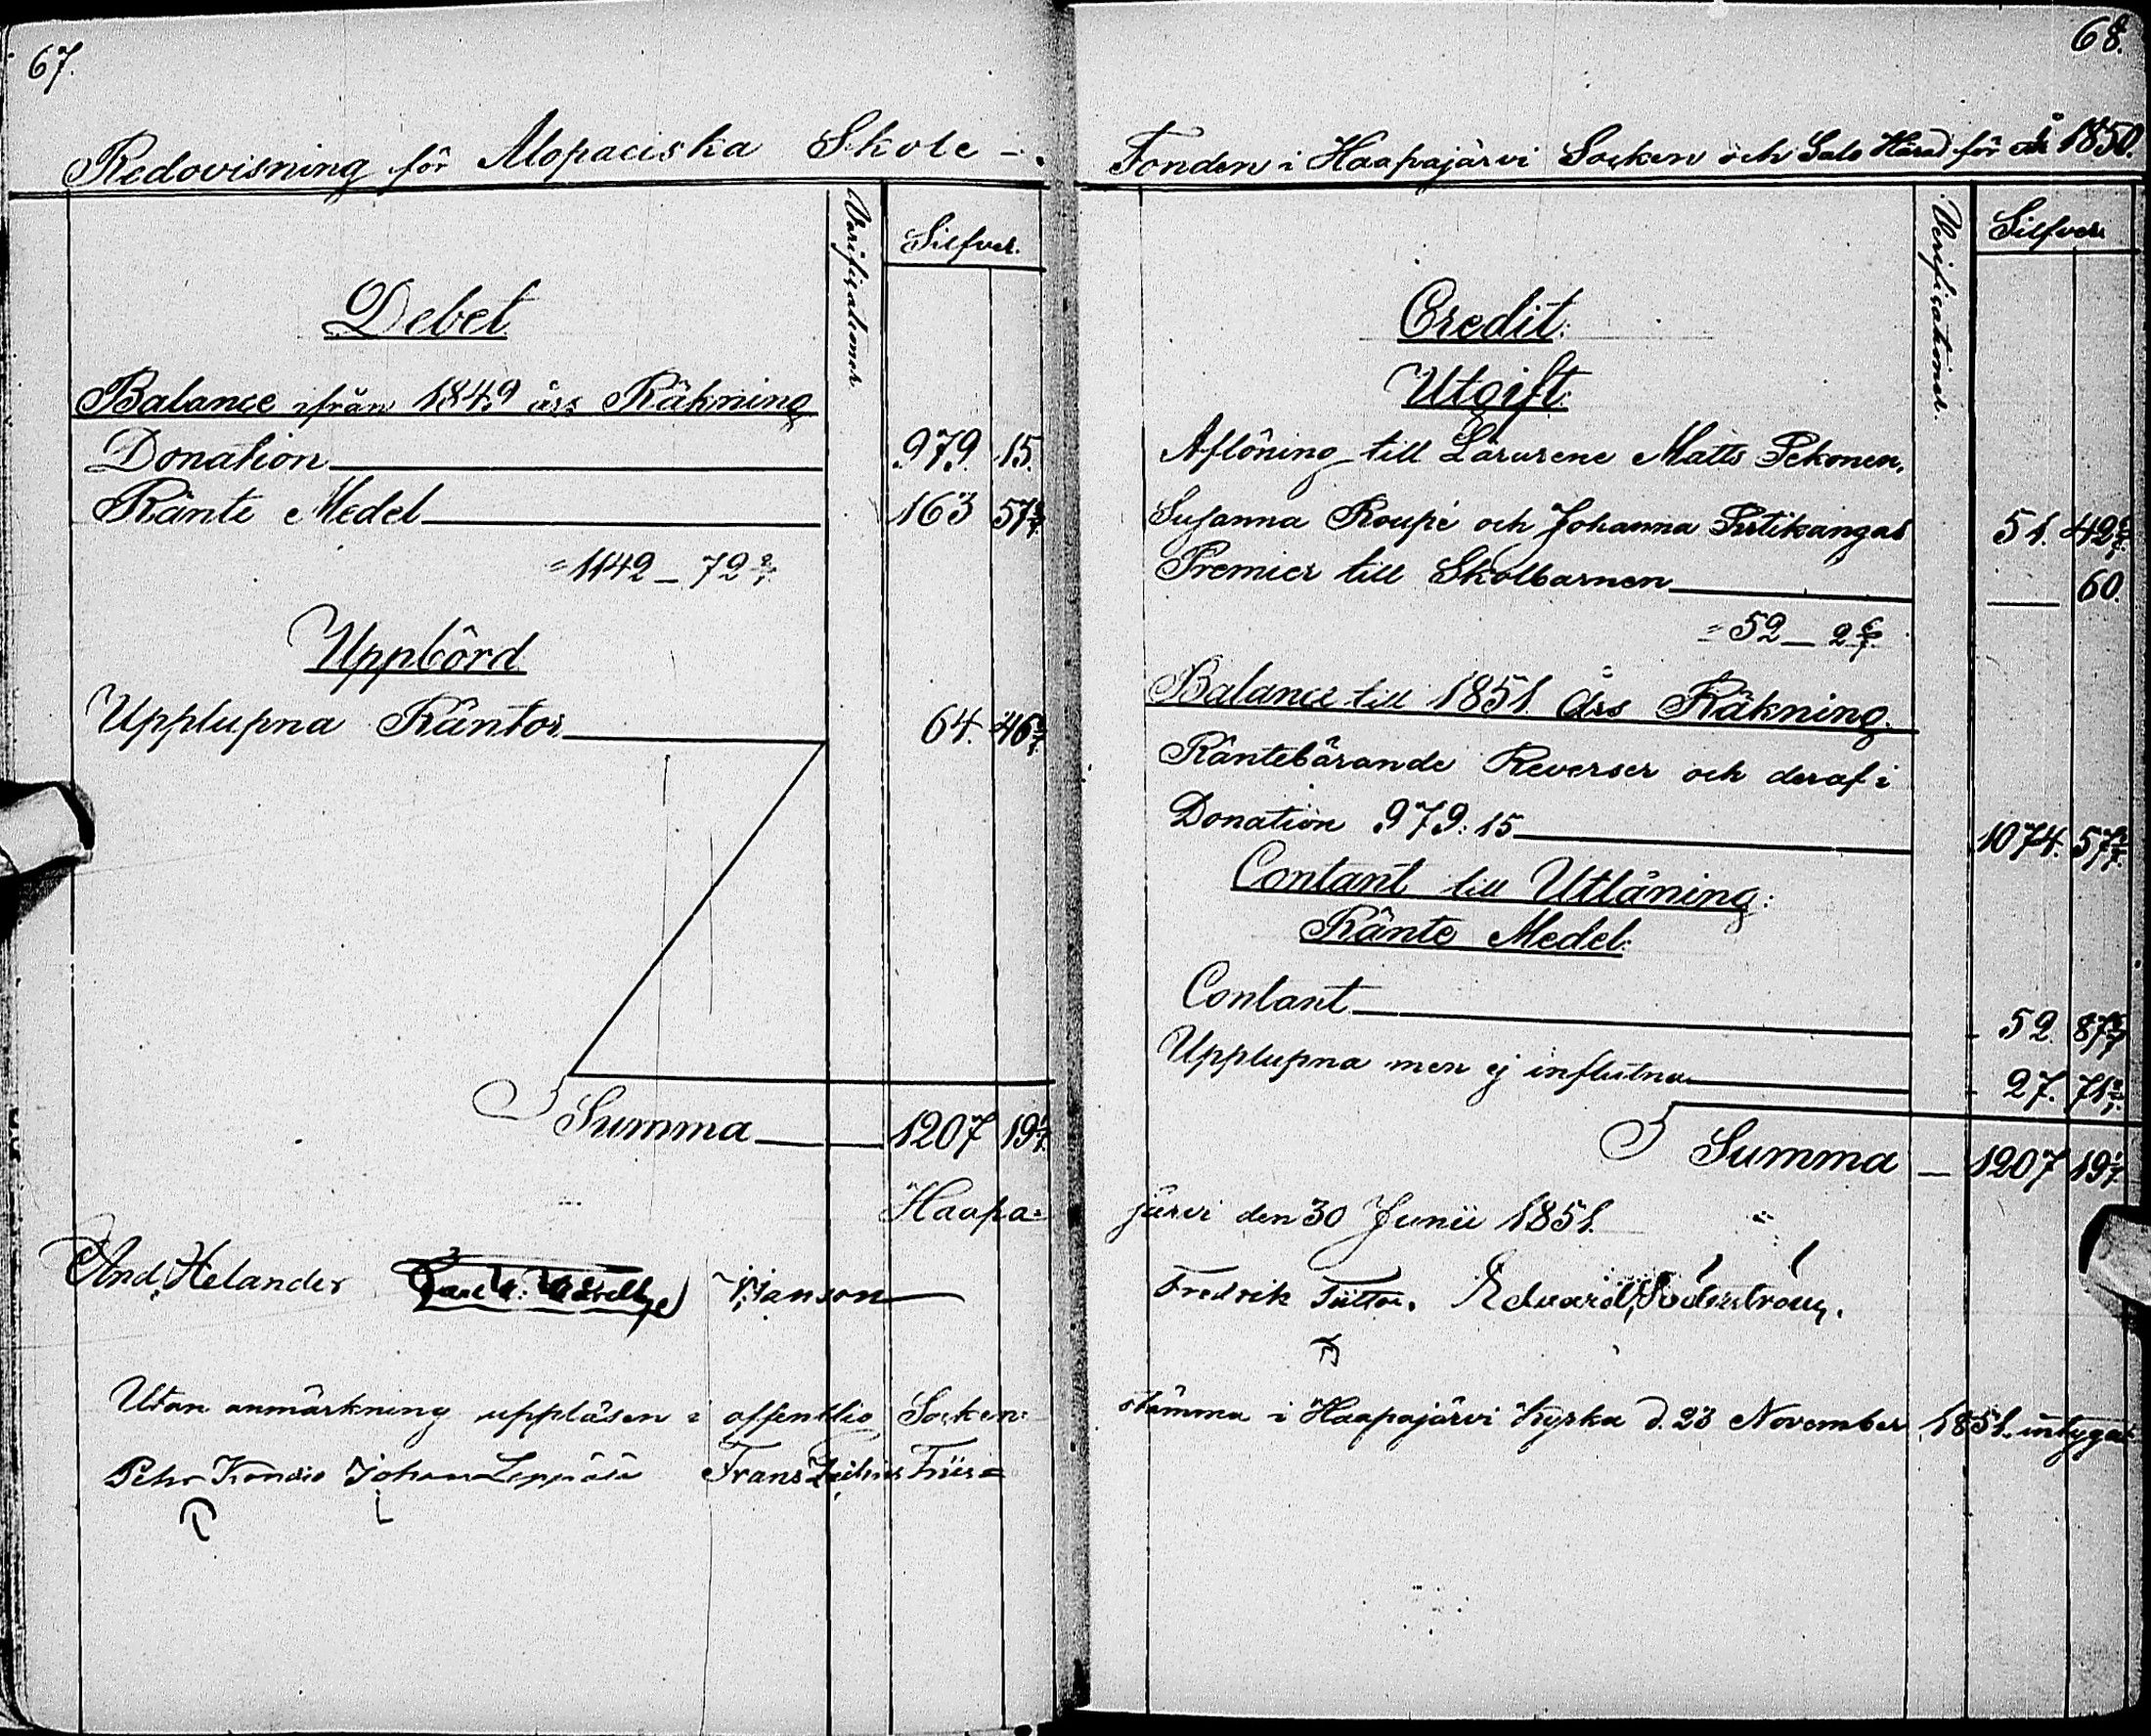 67.
Redovisning för Alopaeiska Skole-
Verificationer
Silfver.
Debet
Balance ifrån 1849 års Räkning
Donation 979. 15.
Ränte Medel 163 57 2/7
= 1142 – 72 2/7.
Uppbörd
Upplupna Räntor 64. 46 6/7
Summa 1207 19 1/7.
Haapa=
And. Helander Hanson
Utan anmärkning uppläsen i offentlig Socken=
Pehr Johan Leppälä Frans
68.
Fonden i Haapajärvi Socken och Salo Härad för år 1850.
Verificationer.
Silfver
Credit:
Utgift:
Aflöning till Lärarene Matts Pekonen,
Susanna Roupé och Johanna 51. 42 6/7.
Premier till Skolbarnen — 60.
= 52 – 2 6/7.
Balance till 1851. Års Räkning.
Räntebärande Reverser och deraf i
Donation 979: 15 1074. 57 2/7.
Contant till Utlåning:
Ränte Medel:
Contant 52. 87 5/7
Upplupna men ej influtna 27. 71 2/7.
Summa — 1207 19 1/7.
järvi den 30 Junii 1851.
Fredrik Edvard Söderström.
stämma i Haapajärvi Kyrka d. 23 November 1851. intygar